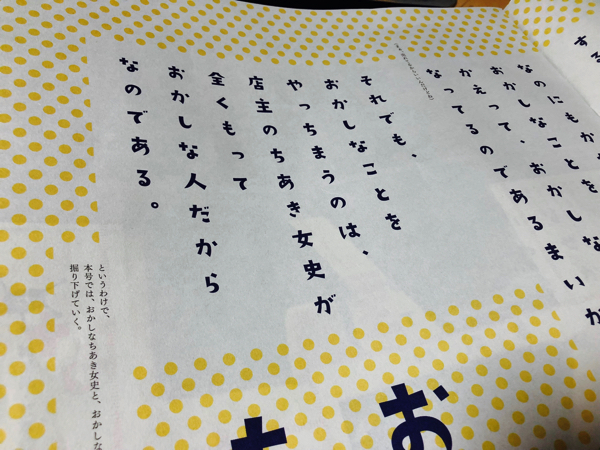 する
なのにもかか
おかしなことを
かえって、おかしな
なってるのであるまいか
それでも、
おかしなことを
やっちまうのは、
店主のちあき女史が
全くもって
おかしな人だから
なのである。
というわけで、
本号では、おかしなちあき女史と、おかしな
掘り下げていく。
お